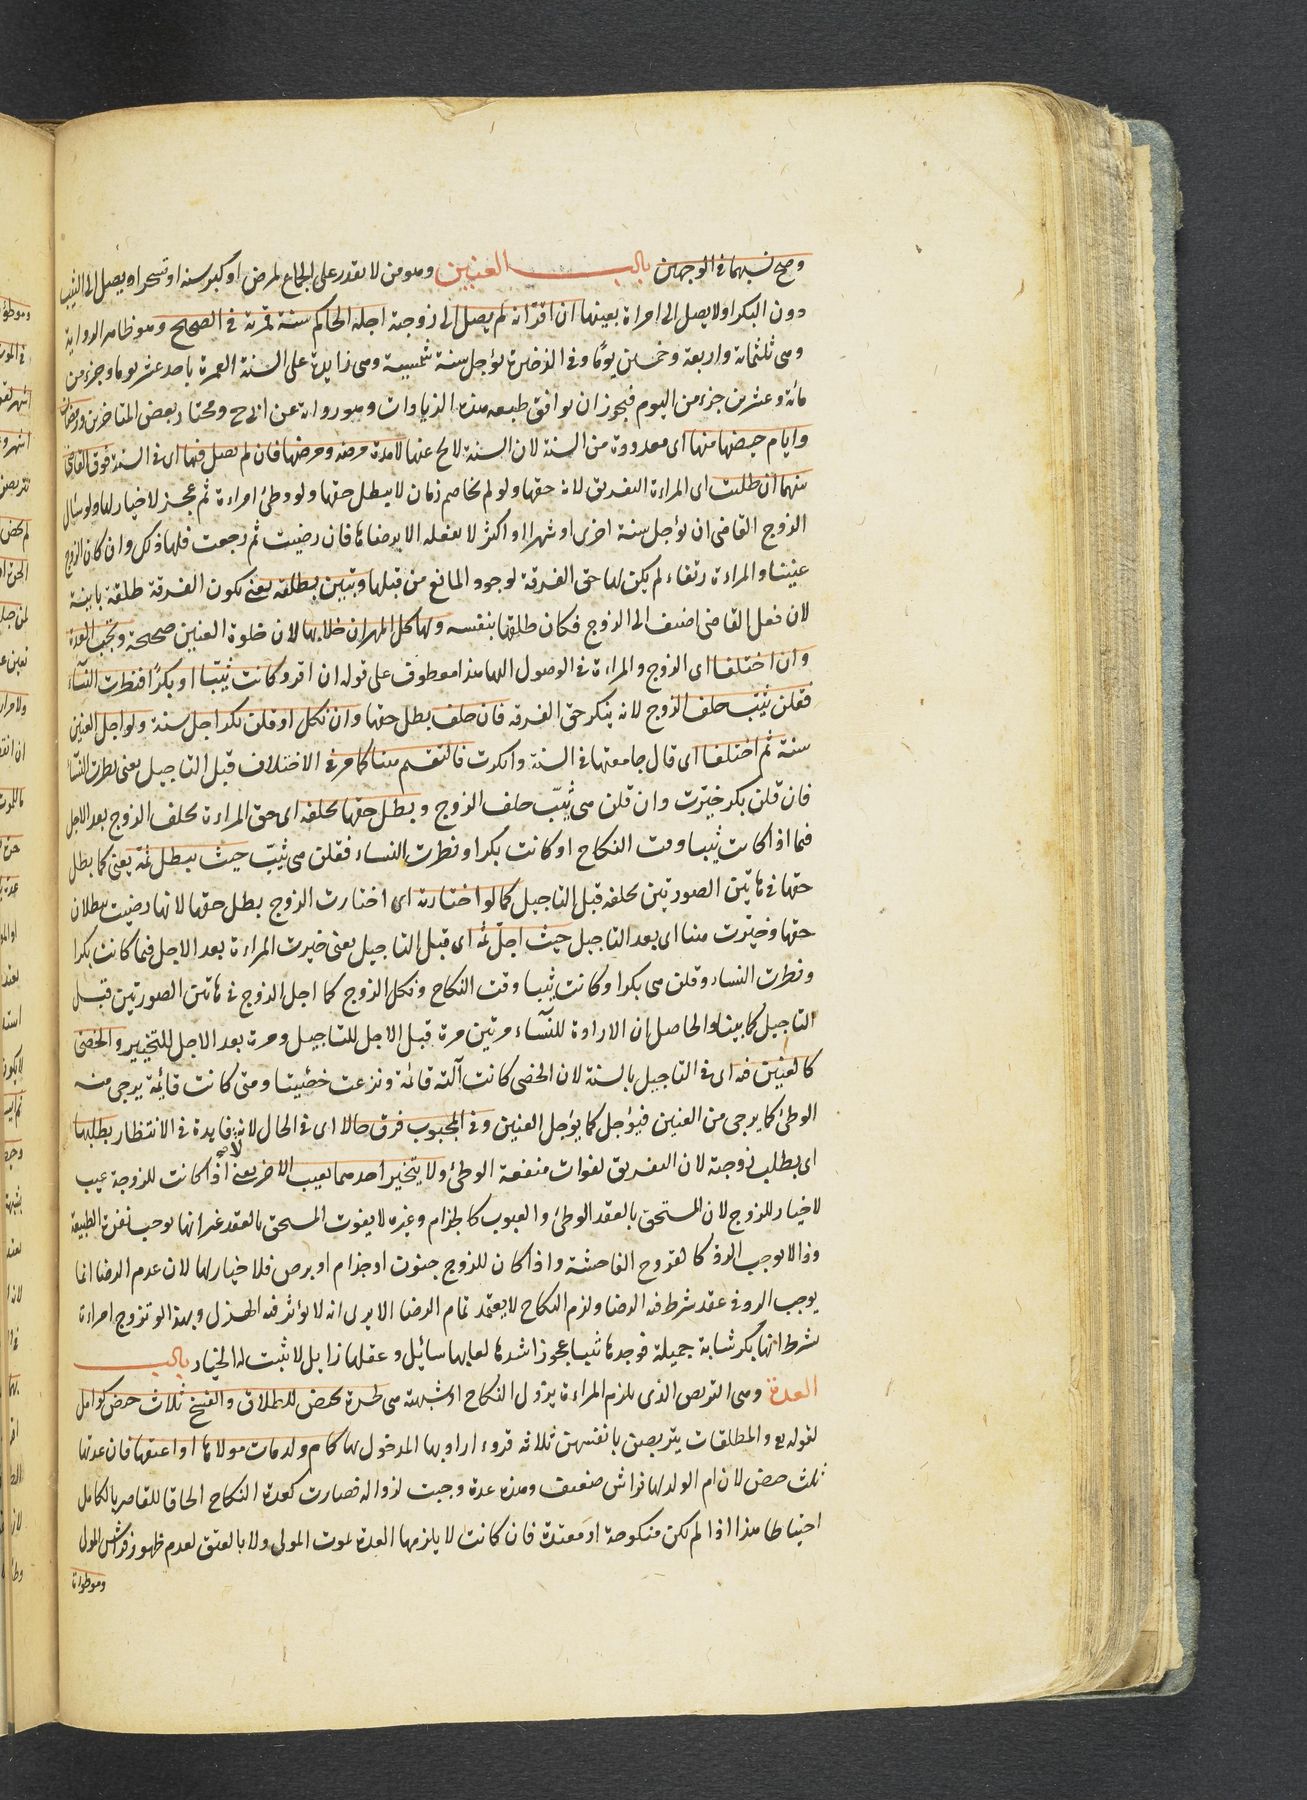 وصح نسبهما فى الوجهين باب العنين وهو من لا يقدر على الجماع لمرض او كبر سنه او سحر او يصل الى الثيب
دون البكر او لا يصل الى امراة بعينها ان اقر انه لم يصل الى زوجته اجله الحاكم سنة قمرية فى الصحيح وهو ظاهر الرواية
وهى ثلثمائة واربعة وخمسين يومًا وفى الذخيرة يؤجل سنة شمسية وهى زايدة على السنة القمرية باحد عشر يوما وجزء من
مائة وعشرين جزء من اليوم فيجوز ان يوافق طبيعه هذه الزيادات وهو رواية عن ابى ح ومختار بعض المتاخرين ورمضان
وايام حيضها منها اى معدودة من السنة لان السنة لا يخ عنها لا مدة مرضه ومرضها فان لم يصل فيها اى فى السنة فرق القاضى
بينهما ان طلبت اى المراءة التفريق لانه حقها ولو لم تخاصم زمان لا يبطل حقها ولو وطئ امراءة ثم عجز لا خيار لها ولو سأل
الزوج القاضى ان يؤجل سنة اخرى او شهرا او اكثر لا يفعله الا برضاها فان رضيت ثم رجعت فلها ذلك وان كان الزوج
عنينا والمراءة رتقاء لم يكن لها حق الفرقة لوجود المانع من قبلها وتبين بطلقه يعنى تكون الفرقة طلقة باينة
لان فعل القاضى اضيف الى الزوج فكان طلقها بنفسه ولها كل المهر ان خلا بها لان خلوة العنين صحيحة وتجب العدة
وان اختلفا اى الزوج والمراءة فى الوصول اليها هذا معطوف على قوله ان اقر وكانت ثيبّا او بكرًا فنظرت النسآء
فقلن ثيب حلف الزوج لانه ينكر حق الفرقه فان حلف بطل حقها وان نكل او قلن بكر اجل سنة ولو اجل العنين
سنة ثم اختلفا اى قال جامعتها فى السنة وانكرت فالتقسيم هنا كما مر فى الاختلاف قبل التاجيل يعنى نظرت النسآء
فان قلن بكر خيّرت وان قلن هى ثيّب حلف الزوج وبطل حقها بحلفه اى حق المراءة بحلف الزوج بعد الاجل
فيما اذا كانت ثيبا وقت النكاح او كانت بكرا ونظرت النساء فقلن هى ثيّب حيث يبطل ثمّة يعنى كما بطل
حقها فى هاتين الصورتين بحلفه قبل التاجيل كما لو اختارته اى اختارت الزوج بطل حقها لانها رضيت ببطلان
حقها وخيّرت هنا اى بعد التاجيل حيث اجل ثمّة اى قبل التاجيل يعنى خيرت المراءة بعد الاجل فيما كانت بكرا
ونظرت النساء وقلن هى بكرا وكانت ثيبا وقت النكاح ونكل الزوج كما اجل الزوج فى هاتين الصورتين قبل
التاجيل كما بينا والحاصل ان الاراءة للنّسآء مرتين مرة قبل الاجل للتاجيل ومرة بعد الاجل للتخيير والخصى
كالعنين فيه اى فى التاجيل بالسنة لان الخصى كانت آلته قائمة ونزعت خصيتا ومتى كانت قايمة يرجى منه
الوطئ كما يرجى من العنين فيؤجل كما يؤجل العنين وفى المجبوب فرق حالا اى فى الحال لانه لا فايدة فى الانتظار بطلبها
اى بطلب زوجة لان التفريق لفوات منفعة الوطئ ولا يتخير احدهما بعيب الاخر يعنى اذا كانت للزوجة عيب
لا خيار للزوج لان المستحق بالعقد الوطئ والعيوب كالجذام وغيره لا يفوت المستحق بالعقد غير انها يوجب نفرة الطبيعة
وذا لا يوجب الرد كالقروح الفاحشة واذا كان للزوج جنون او جذام او برص فلا خيار لها لان عدم الرضا انما
يوجب الرد فى عقد شرط فيه الرضا ولزم النكاح لا يعتمد تمام الرضا الا يرى انه لا يؤثر فيه الهزل وبهذا لو تزوج امراءة
بشرط انها بكر شابة جميلة فوجدها ثيبا عجوزا شدها لعابها سائل وعقلها زايل لا ثبت له الخيار باب
العدة وهى التربص الذى يلزم المراءة بزول النكاح او شبهته هى لحرة تحيض للطلاق والفسخ ثلاث حيض كوامل
لقوله تع والمطلقات يتربصن بانفسهن ثلاثه قروء اراد بها المدخول بها كام ولد مات مولاها او اعتقها فان عدتها
ثلث حيض لان ام الولد لها فراش ضعيف وهذه عدة وجبت لزواله فصارت كعدة النكاح الحاقا للقاصر بالكامل
احتياطا هذا اذا لم تكن منكوحة او معتدة فان كانت لا يلزمها العدة بموت المولى ولا بالعتق لعدم ظهور فراش المولى
وموطوءة